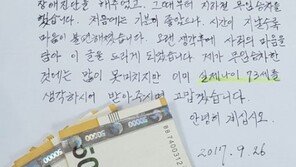 장애진단을 해주었고, 그때부터 지하철 무임승차를
했습니다. 처음에는 기분이 좋았으나, 시간이 지날수록
마음이 불편해졌습니다. 오랜 생각후에 사죄의 마음을
담아 이 글을 드리게 되었습니다. 제가 무임승차한
것에는 많이 못미치지만 이미 실제나이 73세를
생각하시어 받아주시면 고맙겠습니다.
안녕히 계십시오.
2017. 9. 26
50000